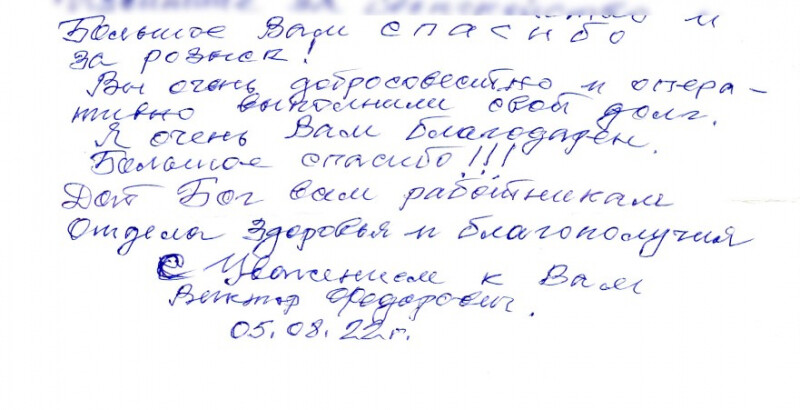 Большое Вам спасибо и
за розыск!
Вы очень добросовестно и опера-
тивно выполнили свой долг.
Я очень Вам благодарен.
Большое спасибо!!!
Дай Бог вам работникам
Отдела Здоровья и благополучия
С Уважением к Вам
Виктор Федорович.
05.08.22г.